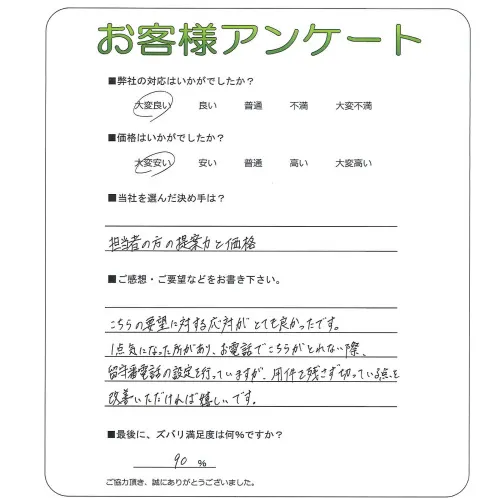 お客様アンケート
■弊社の対応はいかがでしたか？
大変良い 良い 普通 不満 大変不満
■価格はいかがでしたか？
大変安い 安い 普通 高い 大変高い
■当社を選んだ決め手は？
担当者の方の提案力と価格
■ご感想・ご要望などをお書き下さい。
こちらの要望に対する応対がとても良かったです。
1点気になった所があり、お電話でこちらがとれない際、
留守番電話の設定を行っていますが、用件を残さず切っている点を
改善いただければ嬉しいです。
■最後に、ズバリ満足度は何%ですか？
90 %
ご協力頂き、誠にありがとうございました。